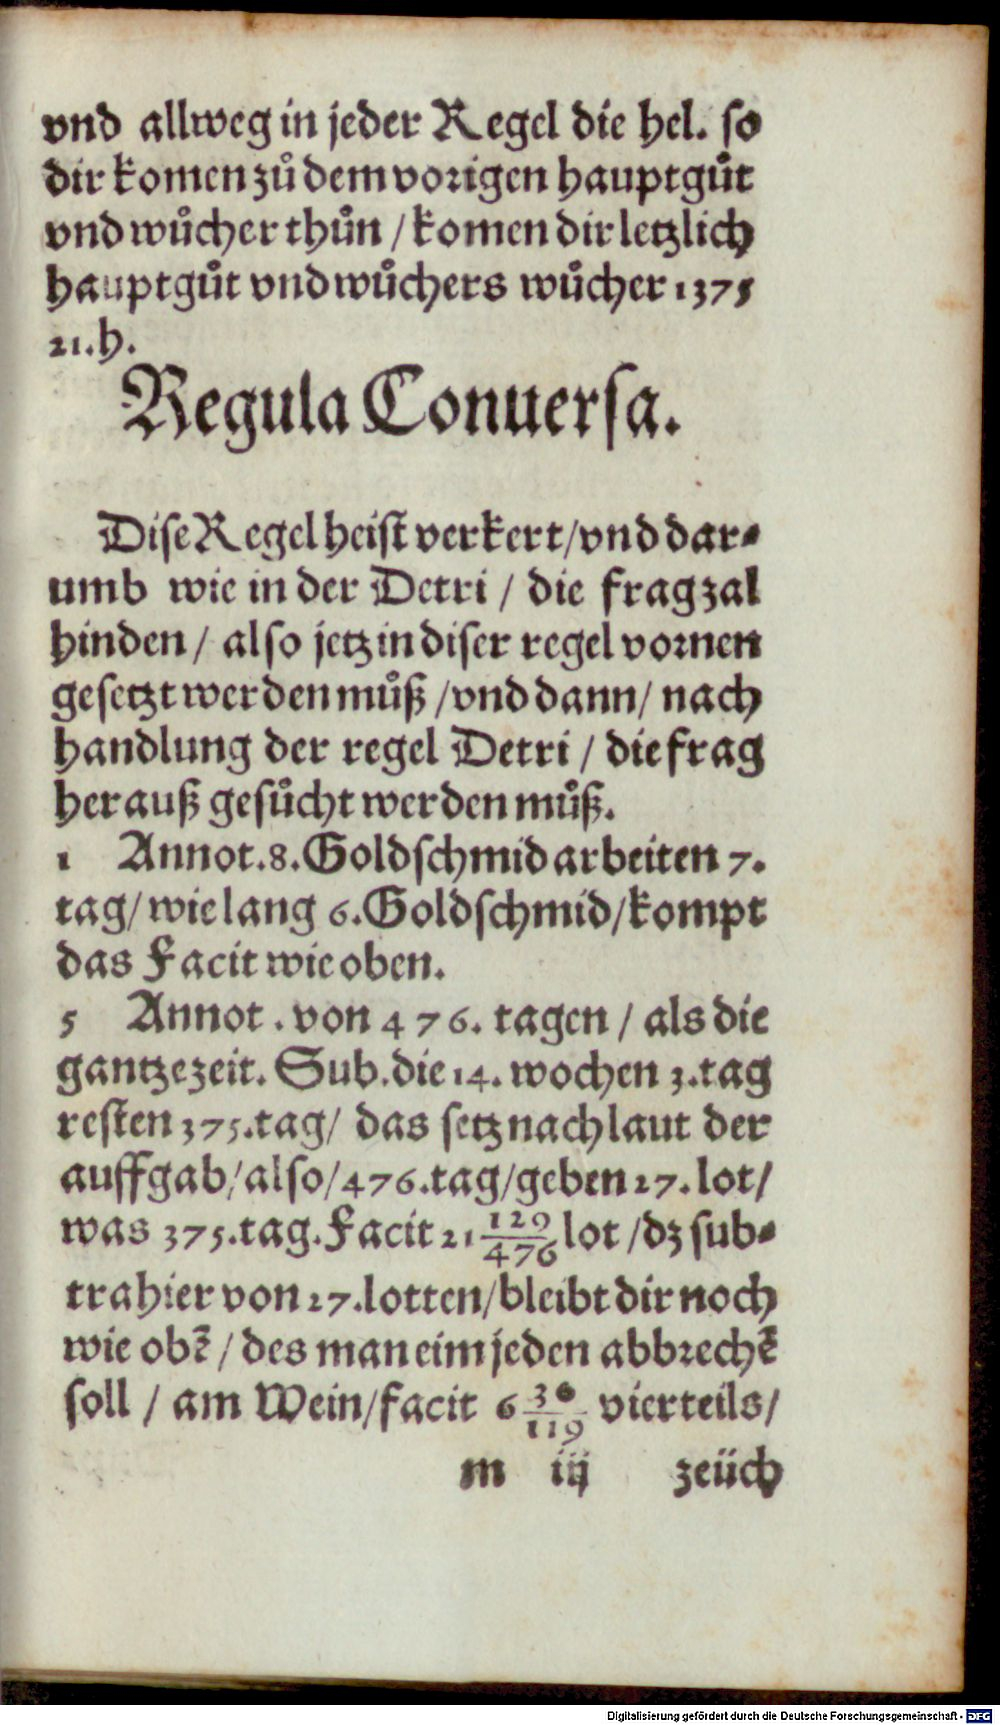 vnd allweg in jeder Regel die hel. so
dir komen zů dem vorigen hauptgůt
vnd wůcher thůn / komen dir letzlich
hauptgůt vnd wůchers wůcher 1375
21.h.
Regula Conuersa.
Dise Regel heist verkert/vnd dar-
umb wie in der Detri / die fragzal
hinden / also jetz in diser regel vornen
gesetzt werden můß /vnd dann/ nach
handlung der regel Detri / die frag
herauß gesůcht werden můß.
1 Annot.8.Goldschmid arbeiten 7.
tag/ wie lang 6.Goldschmid/kompt
das Facit wie oben.
5 Annot . von 476. tagen / als die
gantze zeit. Sub.die 14. wochen 3.tag
resten 375.tag/ das setz nach laut der
auffgab/also/476.tag/geben 27. lot/
was 375.tag.Facit 21 129/476 lot /dz sub-
trahier von 27.lotten/bleibt dir noch
wie obẽ / des man eim jeden abbrechẽ
soll / am Wein/facit 6 30/119 vierteils/
m iij zeüch
Digitalisierung gefördert durch die Deutsche Forschungsgemeinschaft - DFG